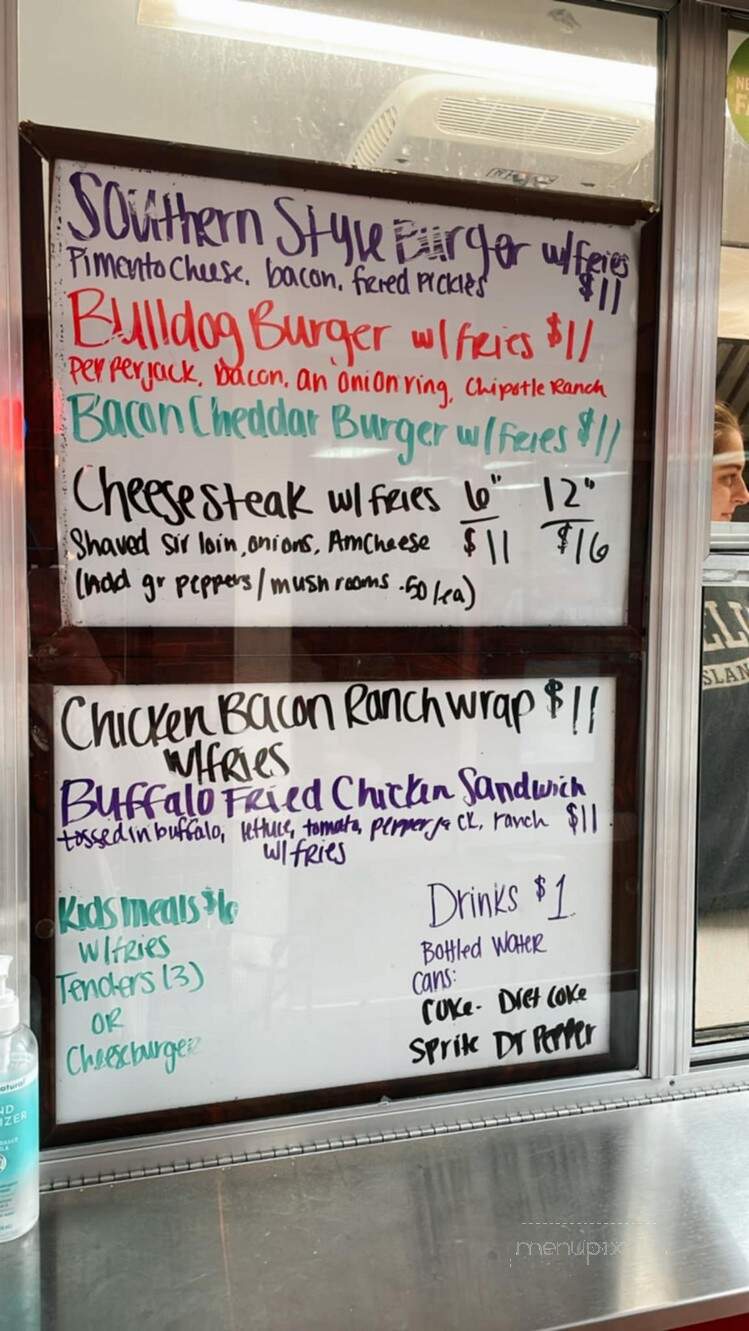 Southern Style Burger w/fries
Pimento Cheese, bacon, fried Pickles $11
Bulldog Burger w/ fries $11
Pepperjack, bacon, an onion ring, Chipotle Ranch
Bacon Cheddar Burger w/fries $11
Cheesesteak w/fries 6" 12"
Shaved Sirloin, onions, AmCheese $11 $16
(Add gr peppers/mushrooms .50/ea)
Chicken Bacon Ranch wrap $11
w/fries
Buffalo Fried Chicken Sandwich
tossed in buffalo, lettuce, tomato, pepperjack, ranch $11
w/fries
Kids meals $6
w/fries
Tenders (3)
OR
Cheeseburger
Drinks $1
Bottled Water
Cans:
Coke - Diet Coke
Sprite Dr Pepper
menupix